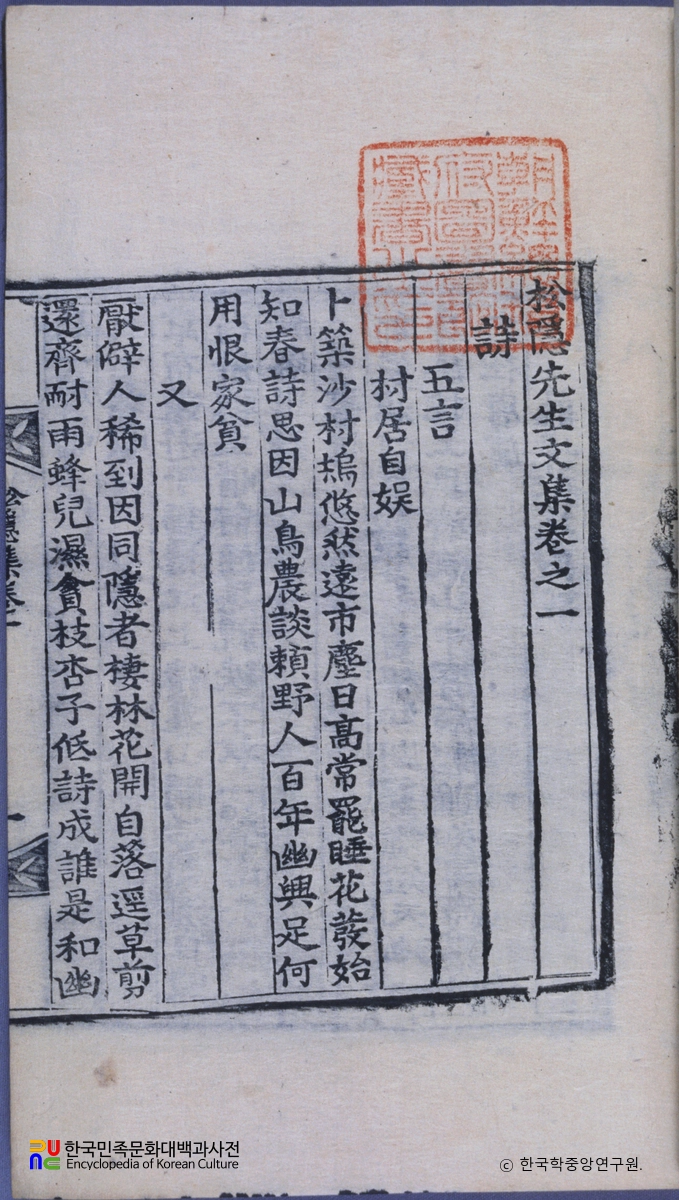 松隱先生文集卷之一
詩
五言
村居自娛
卜築沙村塢悠然遠市塵日高常罷睡花發始
知春詩思因山鳥農談賴野人百年幽興足何
用恨家貧
又
厭僻人稀到因同隱者棲林花開自落逕草剪
還齊耐雨蜂兒濕貪枝杏子低詩成誰是和幽
松隱集卷一
한국민족문화대백과사전
Encyclopedia of Korean Culture
© 한국학중앙연구원.